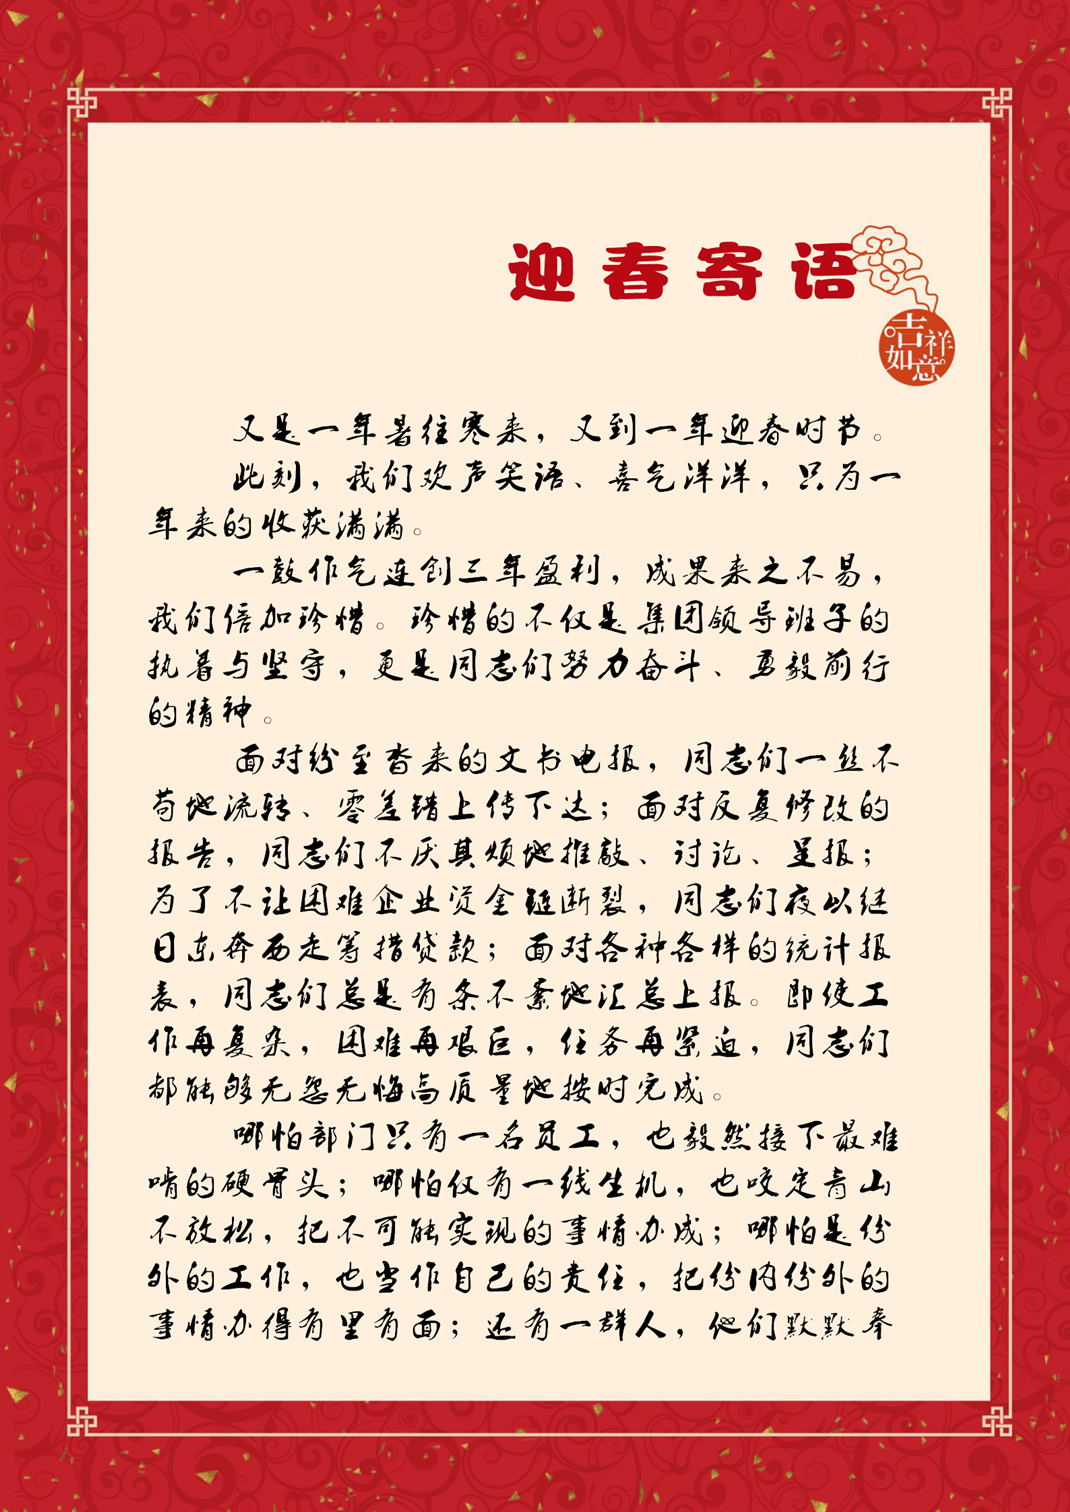 迎春寄语
吉祥
如意
又是一年暑往寒来，又到一年迎春时节。
此刻，我们欢声笑语、喜气洋洋，只为一
年来的收获满满。
一鼓作气连创三年盈利，成果来之不易，
我们倍加珍惜。珍惜的不仅是集团领导班子的
执着与坚守，更是同志们努力奋斗、勇毅前行
的精神。
面对纷至沓来的文书电报，同志们一丝不
苟地流转、零差错上传下达；面对反复修改的
报告，同志们不厌其烦地推敲、讨论、呈报；
为了不让困难企业资金链断裂，同志们夜以继
日东奔西走筹措贷款；面对各种各样的统计报
表，同志们总是有条不紊地汇总上报。即使工
作再复杂，困难再艰巨，任务再紧迫，同志们
都能够无怨无悔高质量地按时完成。
哪怕部门只有一名员工，也毅然接下最难
啃的硬骨头；哪怕仅有一线生机，也咬定青山
不放松，把不可能实现的事情办成；哪怕是份
外的工作，也当作自己的责任，把份内份外的
事情办得有里有面；还有一群人，他们默默奉